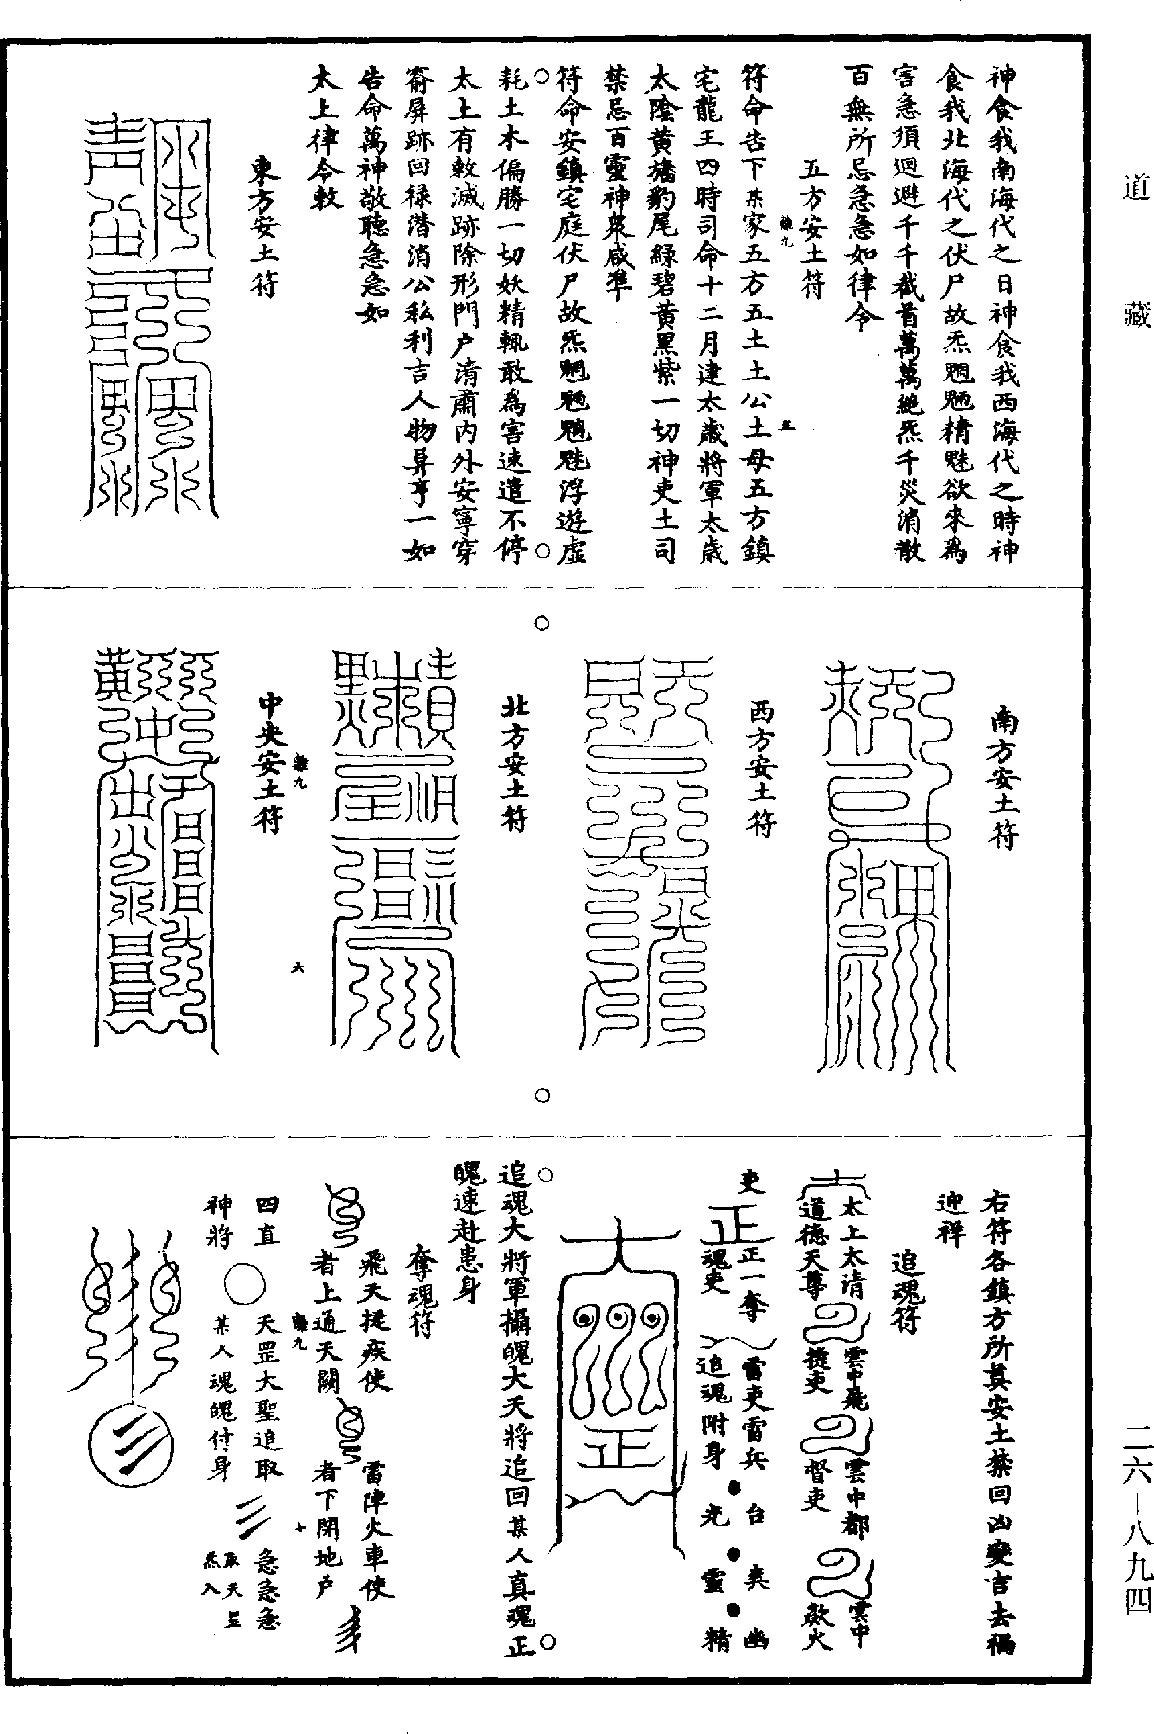 道藏
神食我南海代之日神食我西海代之時神
食我北海代之伏尸故炁魍魎精魅欲來為
害急須迴避千千截首萬萬絕炁千災消散
百無所忌急急如律令
五方安土符
符命告下某家五方五土土公土母五方鎮
宅龍王四時司命十二月建太歲將軍太歲
太陰黃旛豹尾綠碧黃黑紫一切神吏土司
禁忌百靈神眾咸準
符命安鎮宅庭伏尸故炁魍魎魅浮遊虛
耗土木偏勝一切妖精輒敢為害速遣不停
太上有敕滅跡除形門戶清肅內外安寧穿
窬屏跡回祿潛消公私利吉人物異亨一如
告命萬神敬聽急急如
太上律令敕
東方安土符
南方安土符
西方安土符
北方安土符
中央安土符
六
右符各鎮方所奠安土禁回凶變吉去禍
迎祥
追魂符
太上太清
道德天尊
雲中飛
捷吏
雲中都
督吏
雲中
歘火
吏
正
正一奪
魂吏
雷吏雷兵
追魂附身
台 爽 幽
光 靈 精
追魂大將軍攝魄大天將追回某人真魂正
魄速赴患身
奪魂符
飛天捷疾使
者上通天關
雷陣火車使
者下閉地戶
四直
神將
天罡大聖追取
某人魂魄付身
急急急
取天罡
炁入
二六—八九四